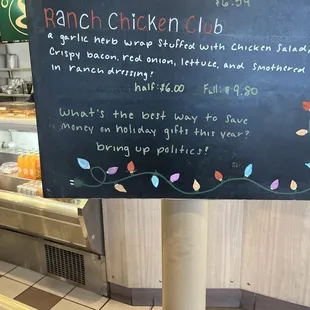 $6.59
Ranch Chicken Club
a garlic herb wrap stuffed with chicken salad,
Crispy bacon, red onion, lettuce, and smothered
in ranch dressing!
half: $6.00 Full: $9.80
What's the best way to save
money on holiday gifts this year?
bring up politics!